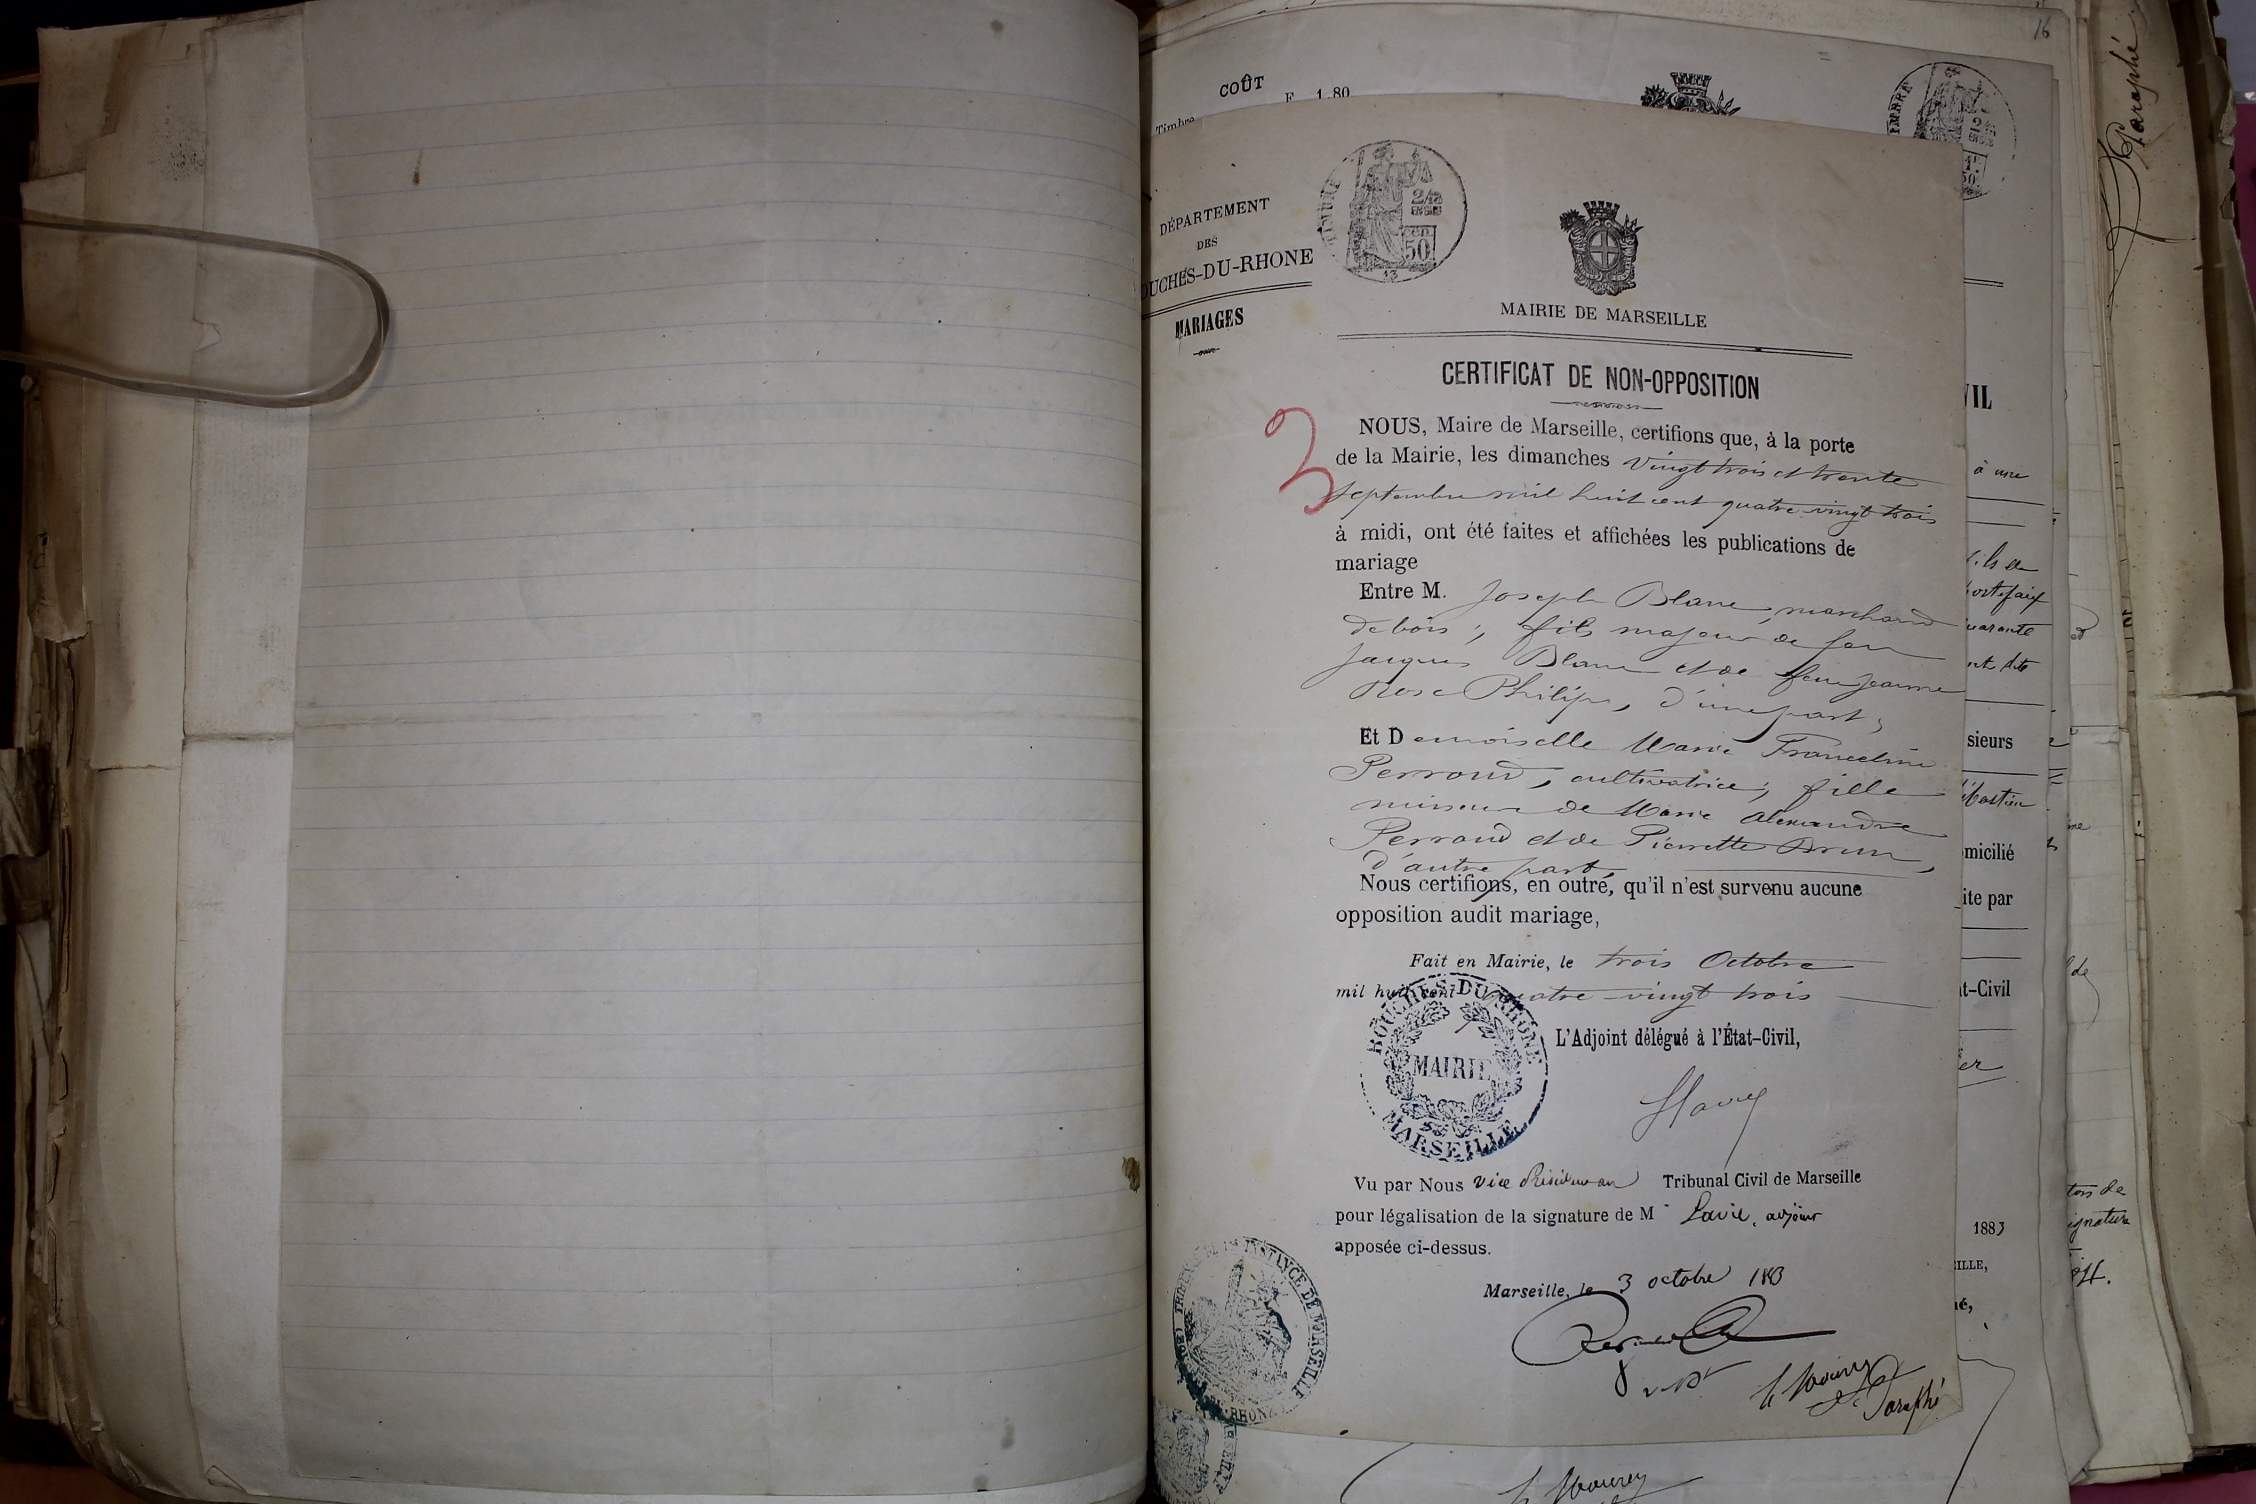 16
COÛT
F. 1.80
Timbre
TIMBRE
2/10
EN SUS
50
Paraphé
DÉPARTEMENT
DES
OUCHES-DU-RHONE
MARIAGES
TIMBRE
2/10
EN SUS
50
13
MAIRIE DE MARSEILLE
CERTIFICAT DE NON-OPPOSITION
3
NOUS, Maire de Marseille, certifions que, à la porte
de la Mairie, les dimanches vingt trois et trente
septembre mil huit cent quatre vingt trois
à midi, ont été faites et affichées les publications de
mariage
Entre M. Joseph Blanc, marchand
de bois; fils majeur de feu
Jacques Blanc et de feue Jeanne
Rose Philip, d'une part;
Et Demoiselle Marie Franceline
Perroud, cultivatrice; fille
mineure de Marie Alexandre
Perroud et de Pierrette Brun,
d'autre part
Nous certifions, en outre, qu'il n'est survenu aucune
opposition audit mariage,
Fait en Mairie, le trois Octobre
mil huit cent quatre vingt trois
BOUCHES-DU-RHÔNE
MAIRIE
MARSEILLE
L'Adjoint délégué à l'État-Civil,
Vu par Nous vice Président au Tribunal Civil de Marseille
pour légalisation de la signature de M Lavie, adjoint
apposée ci-dessus.
Marseille, le 3 octobre 1883
Paraphé
VIL
à une
fils de
portefaix
quarante
sieurs
micilié
ite par
at-Civil
1883
ILLE,